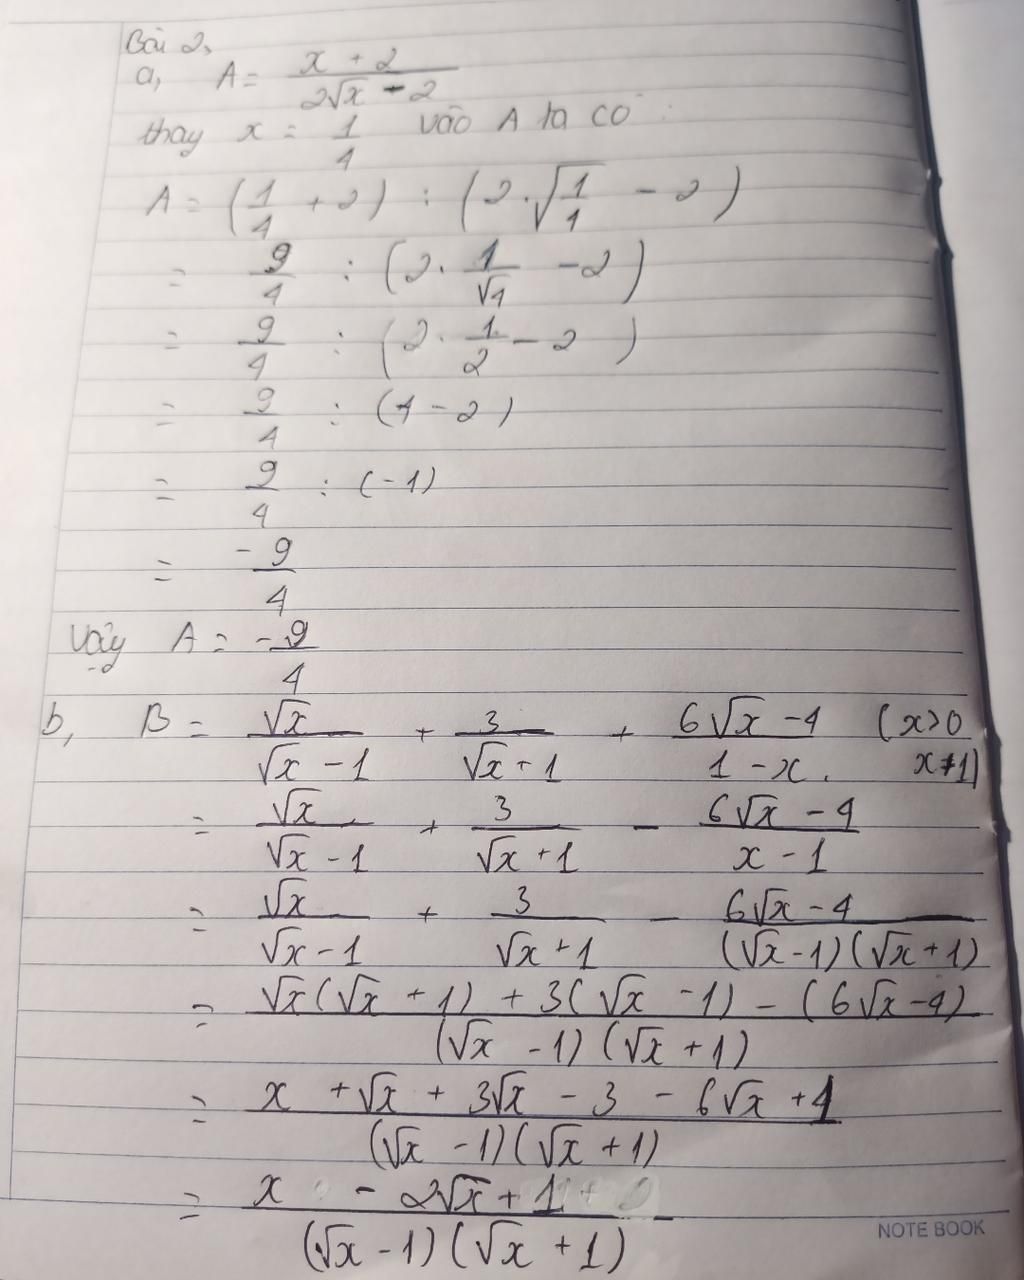 Bài 2,
a, A = (x + 2)/(2√x - 2)
thay x = 1/4 vào A ta có :
A = (1/4 + 2) : (2.√(1/4) - 2)
= 9/4 : (2. 1/√4 - 2)
= 9/4 : (2. 1/2 - 2)
= 9/4 : (1 - 2)
= 9/4 : (-1)
= -9/4
Vậy A = -9/4
b, B = √x/(√x - 1) + 3/(√x + 1) + (6√x - 4)/(1 - x) (x>0 x≠1)
= √x/(√x - 1) + 3/(√x + 1) - (6√x - 4)/(x - 1)
= √x/(√x - 1) + 3/(√x + 1) - (6√x - 4)/((√x - 1)(√x + 1))
= (√x(√x + 1) + 3(√x - 1) - (6√x - 4))/((√x - 1)(√x + 1))
= (x + √x + 3√x - 3 - 6√x + 4)/((√x - 1)(√x + 1))
= (x - 2√x + 1)/((√x - 1)(√x + 1))
NOTE BOOK